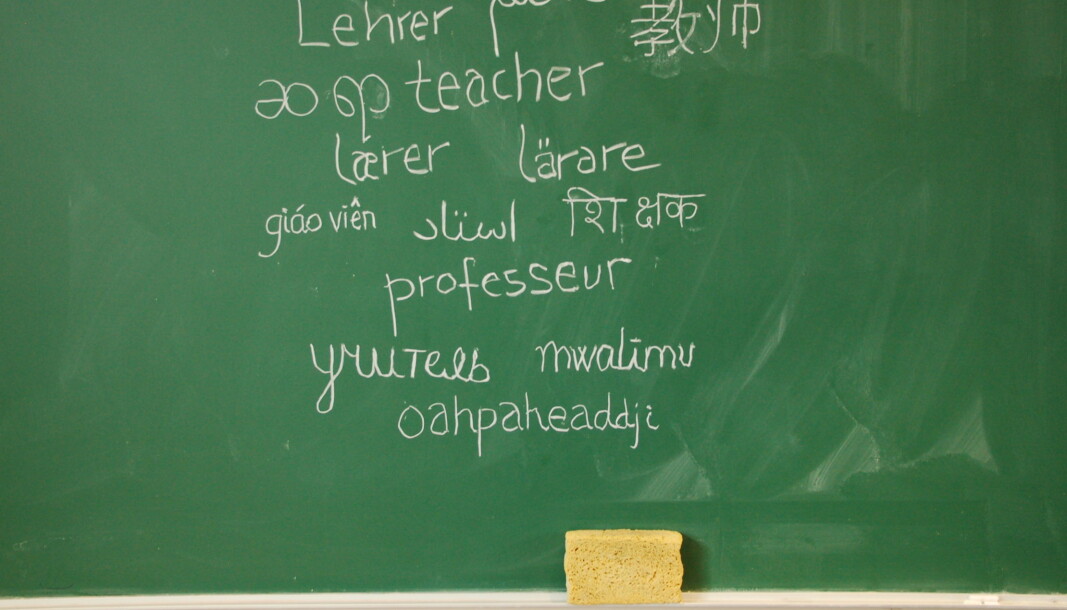 Lehrer 教师
teacher
lærer lärare
giáo viên استاد शिक्षक
professeur
учитель mwalimu
oahpaheaddji